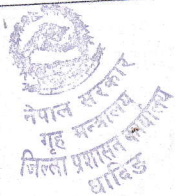 नेपाल सरकार
गृह मन्त्रालय
जिल्ला प्रशासन कार्यालय
धादिङ